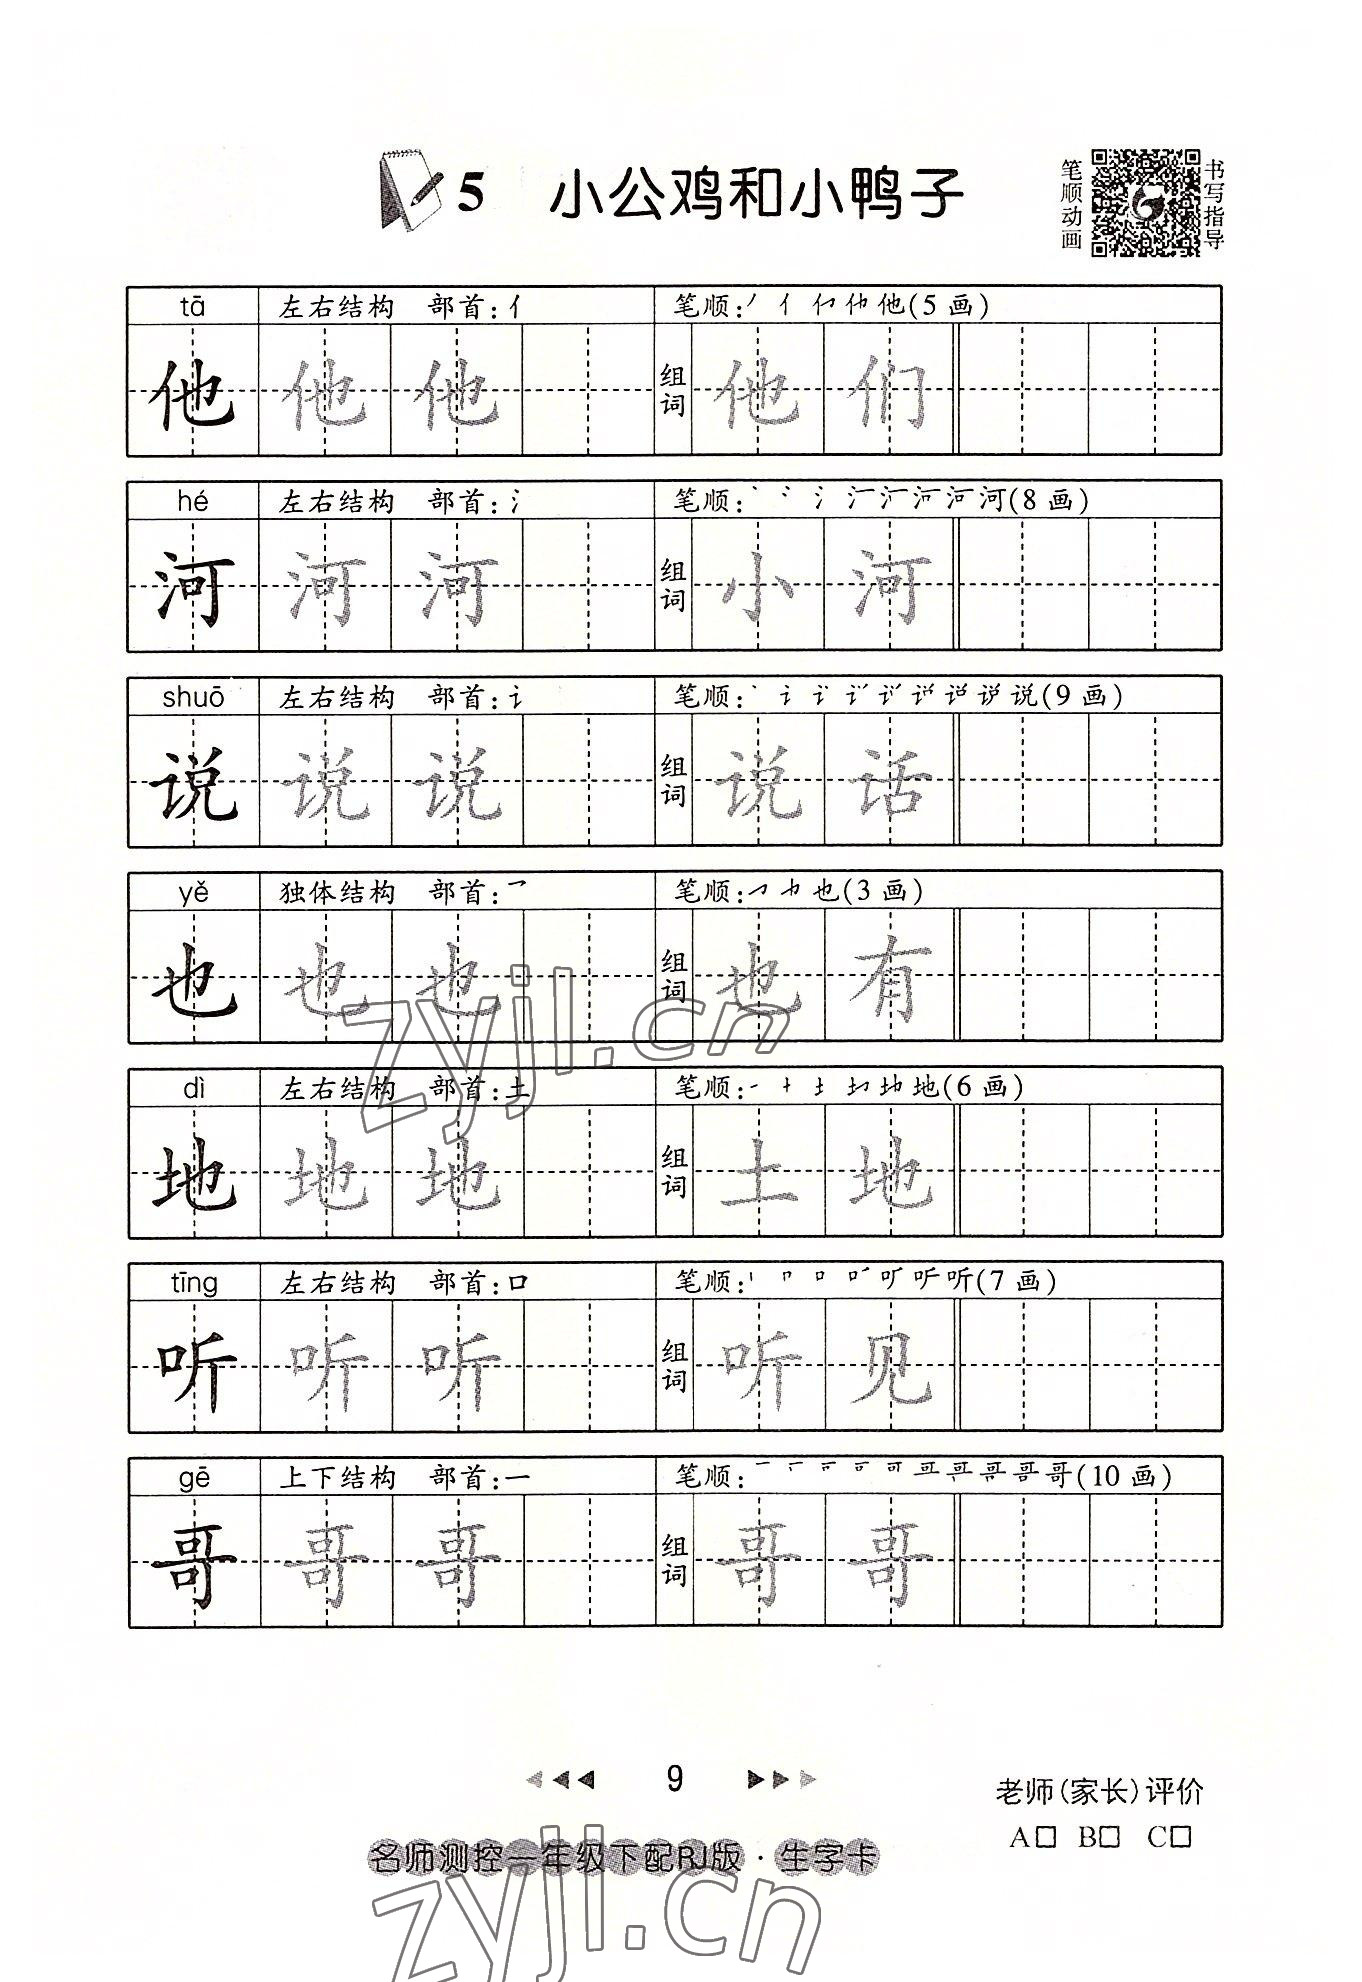 5 小公鸡和小鸭子
笔顺动画
书写指导
tā 左右结构 部首:亻 笔顺: 他(5画)
他 他 他 组词 他 们
hé 左右结构 部首:氵 笔顺: 河(8画)
河 河 河 组词 小 河
shuō 左右结构 部首:讠 笔顺: 说(9画)
说 说 说 组词 说 话
yě 独体结构 部首:乛 笔顺: 也(3画)
也 也 也 组词 也 有
dì 左右结构 部首:土 笔顺: 地(6画)
地 地 地 组词 土 地
tīng 左右结构 部首:口 笔顺: 听(7画)
听 听 听 组词 听 见
gē 上下结构 部首:一 笔顺: 哥(10画)
哥 哥 哥 组词 哥 哥
zyjl.cn
9
老师(家长)评价
A□ B□ C□
名师测控一年级下配RJ版·生字卡
zyjl.cn